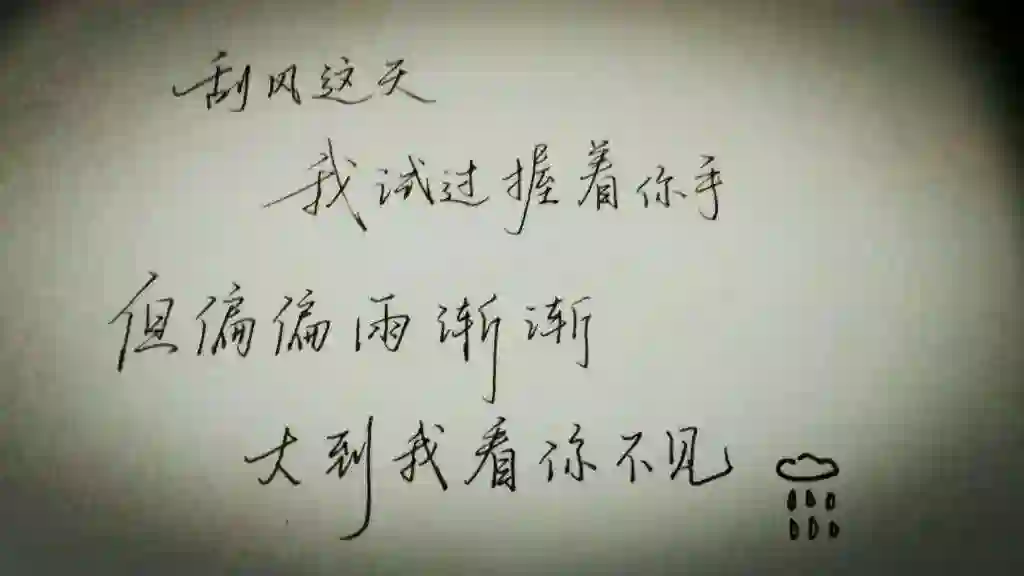 刮风这天
我试过握着你手
但偏偏雨渐渐
大到我看你不见